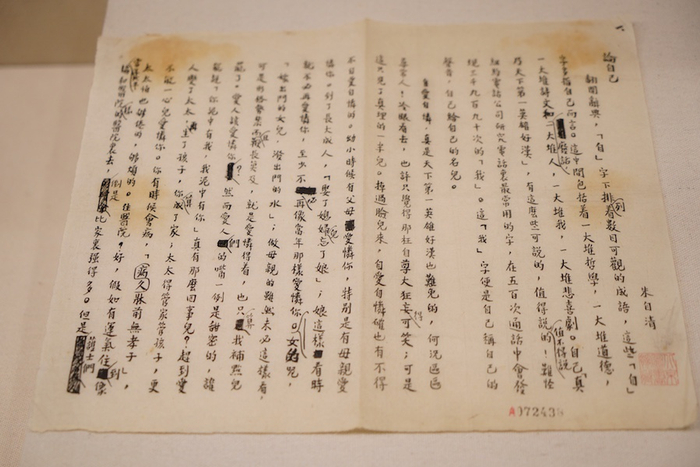 論自己
朱自清
翻開辭典,「自」字下排列着數目可觀的成語,這些「自」
字多指自己而言。這中間包括着一大堆哲學,一大堆道德,
一大堆詩文和廢話,一大堆人,一大堆我,一大堆悲喜劇。自己「真
乃天下第一英雄好漢」,有這麼些可說的,值得說值不得說的!難怪
紐約電話公司研究電話裏最常用的字,在五百次通話中會發
現三千九百九十次的「我」。這「我」字便是自己稱自己的
聲音,自己給自己的名兒。
自愛自憐!真是天下第一英雄好漢也難免的,何況區區
尋常人!冷眼看去,也許只覺得那枉自尊大狂妄得可笑;可是
這只見了真理的一半兒。掉過臉兒來,自愛自憐確也有不得
不自愛自憐的。幼小時候有父母愛憐你,特別是有母親愛
憐你。到了長大成人,「娶了媳婦兒忘了娘」,娘這樣看時
就不必再愛憐你,至少不必再像當年那樣愛憐你。女的呢,
「嫁出門的女兒,潑出門的水」;做母親的雖然未必這樣看,
可是形格勢禁而且鞭長莫及,就是愛憐得着,也只算找補點兒
罷了。愛人該愛憐你?然而愛人們的嘴一例是甜蜜的,誰
能說「你泥中有我,我泥中有你」真有那麼回事兒?趕到愛
人變了太太,再生了孩子,你算成了家,太太得管家管孩子,更
不能一心兒愛憐你。你有時候會病,「久病牀前無孝子」,
太太怕也夠倦的,夠煩的。住醫院?好,假如有運氣住到像
協和醫院樣的醫院裏去,倒是比家裏強得多。但是護士們
A072438